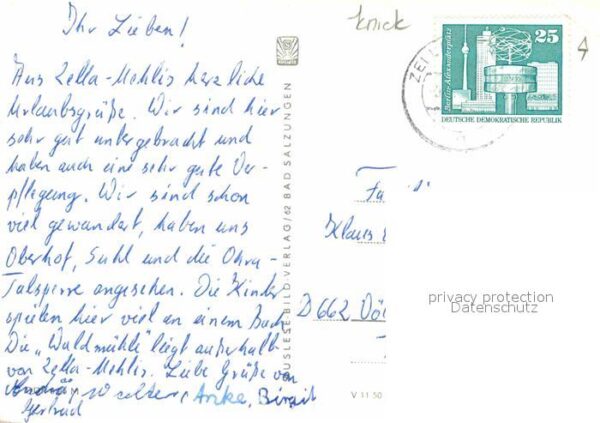 Ihr Lieben!
Aus Zella-Mehlis herzliche
Urlaubsgrüße. Wir sind hier
sehr gut untergebracht und
haben auch eine sehr gute Ver-
pflegung. Wir sind schon
viel gewandert, haben uns
Oberhof, Suhl und die Ohra-
Talsperre angesehen. Die Kinder
spielen hier viel an einem Bach
Die "Waldmühle" liegt außerhalb
von Zella-Mehlis. Liebe Grüße von
Anke, Birgit
Gertrud
AUSLESE-BILD-VERLAG/62 BAD SALZUNGEN
knick
ZELL
25
Berlin-Alexanderplatz
DEUTSCHE DEMOKRATISCHE REPUBLIK
Fa
Klaus
D 662 Vö
privacy protection
Datenschutz
V 11 50